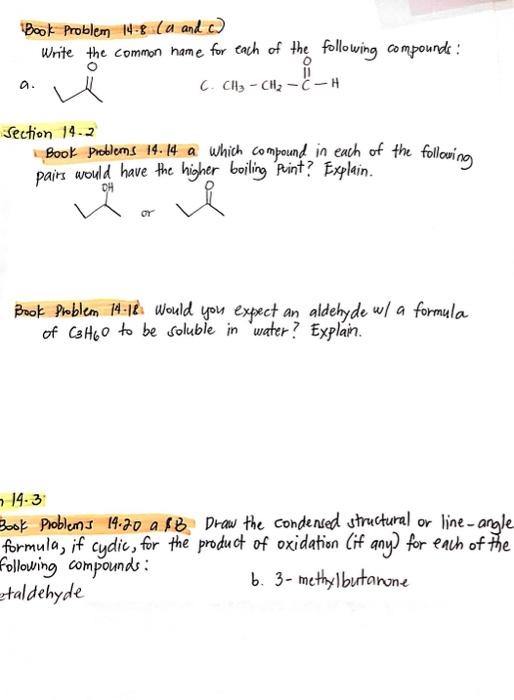 Book Problem 14.8 (a and c)
Write the common name for each of the following compounds:
a.
O
C. CH3 - CH2 - C - H
O
Section 14.2
Book Problems 14.14 a Which compound in each of the following
pairs would have the higher boiling point? Explain.
OH
or
O
Book Problem 14.18 Would you expect an aldehyde w/ a formula
of C3H6O to be soluble in water? Explain.
14.3
Book Problems 14.20 a & B Draw the condensed structural or line-angle
formula, if cyclic, for the product of oxidation (if any) for each of the
following compounds:
etaldehyde
b. 3-methylbutanone